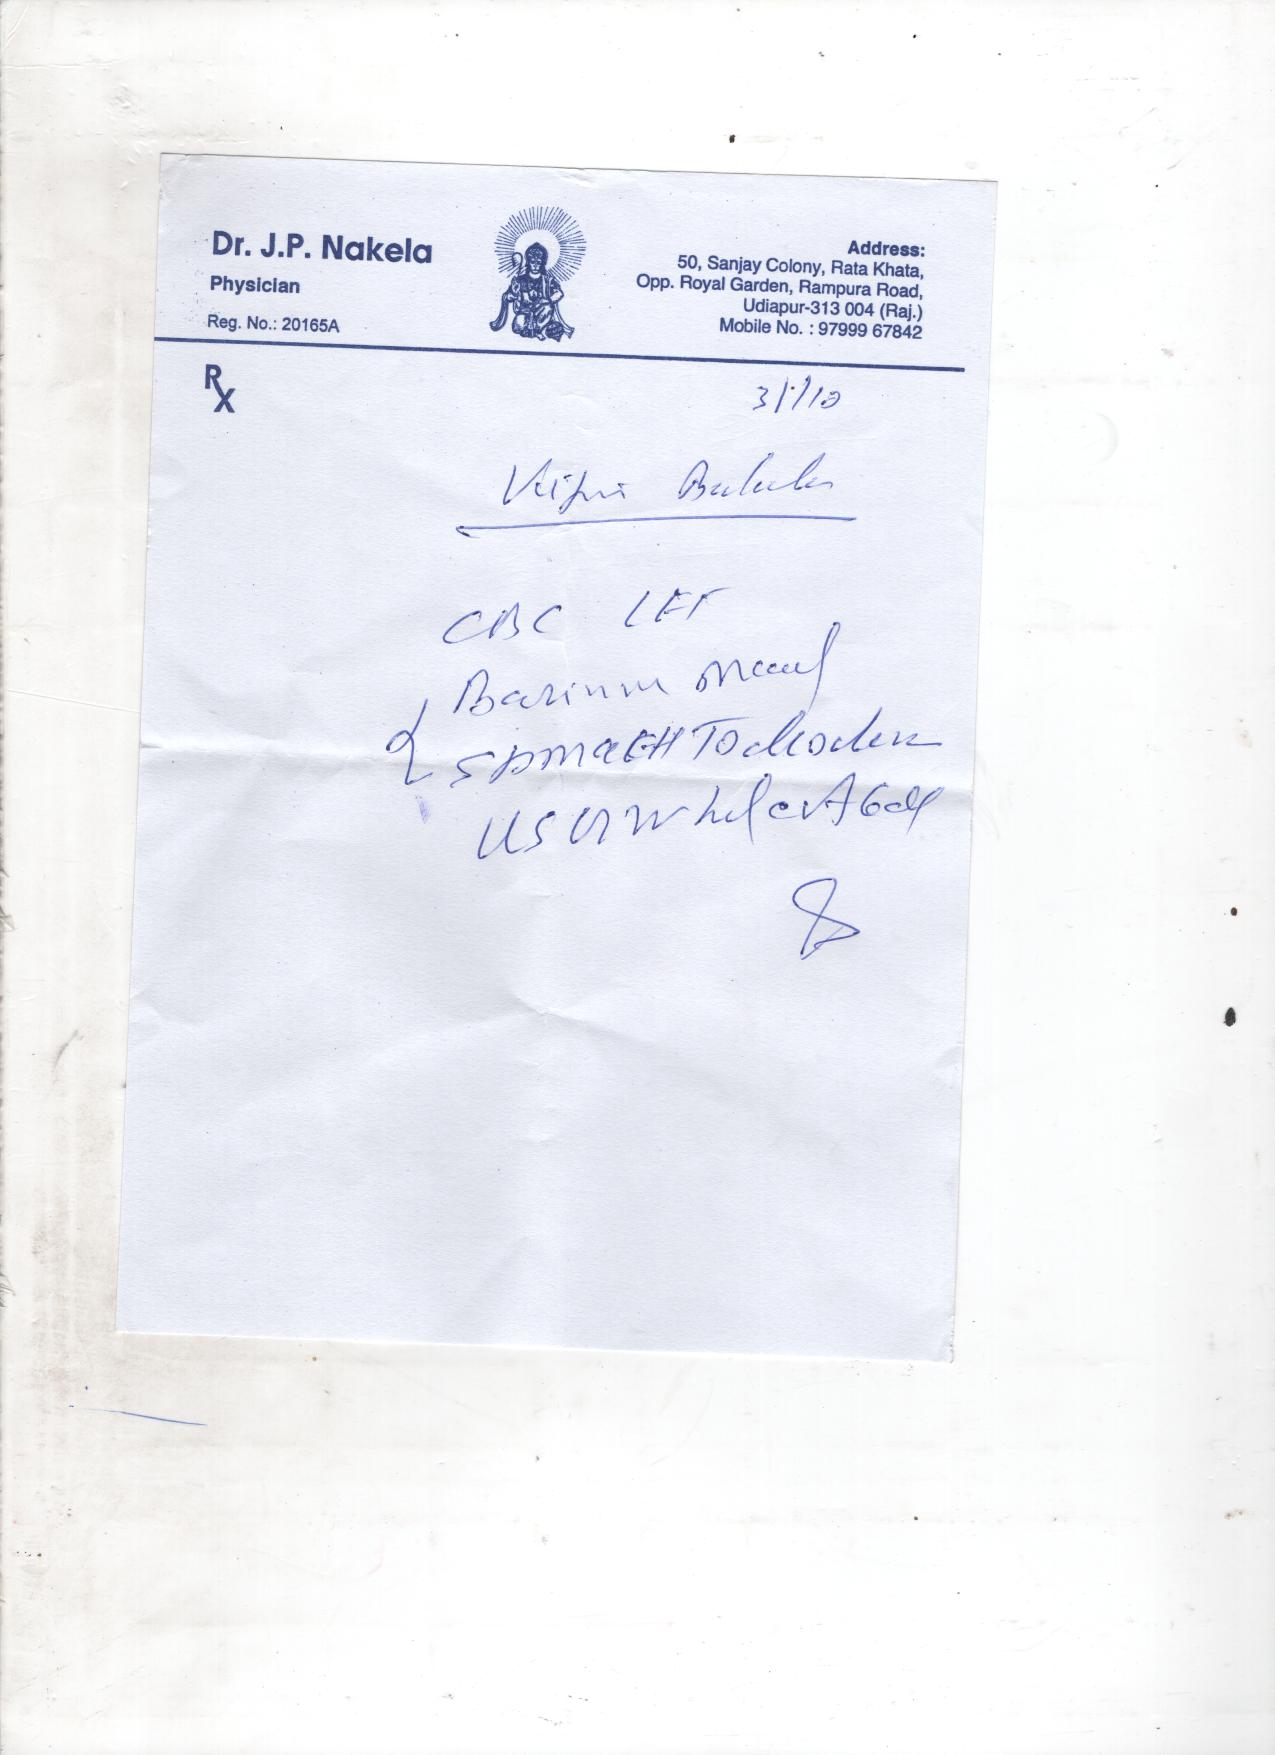 Dr. J.P. Nakela
Physician
Reg. No.: 20165A
Address:
50, Sanjay Colony, Rata Khata,
Opp. Royal Garden, Rampura Road,
Udiapur-313 004 (Raj.)
Mobile No. : 97999 67842
Rx
CBC LFT
Barium meal
USG Whole Abd